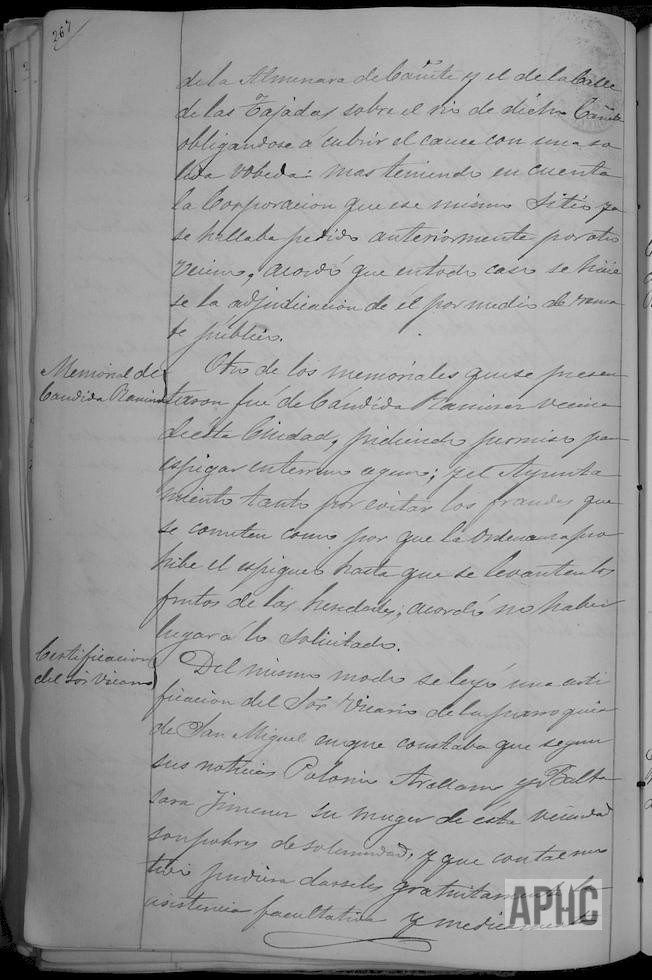 267
de la Almenara de Cañete y el de la Calle
de las Tajadas sobre el rio de dicho Cañete
obligandose á cubrir el cauce con una so
lida vobeda: mas teniendo en cuenta
la Corporacion que ese mismo sitio ya
se hallaba pedido anteriormente por otro
vecino, acordó que en todo caso se hicie
se la adjudicacion de el por medio de rema
te público.
Memorial de
Candida Ramirez
Otro de los memoriales que se presen
taron fué de Cándida Ramirez vecina
de esta Ciudad, pidiendo permiso para
espigar en terreno ageno; y el Ayunta
miento tanto por evitar los fraudes que
se cometen como por que la ordenanza pro
hibe el espigueo hasta que se levanten los
frutos de las heredades, acordó no haber
lugar á lo solicitado.
Certificacion
del Sór Vicario
Del mismo modo se leyó una certi
ficacion del Sór Vicario de la parroquia
de San Miguel en que constaba que segun
sus noticias Polonio Arellano y Balta
sara Jimenez su muger de esta vecindad
son pobres de solemnidad, y que con tal mo
tivo pudiera darseles gratuitamente la
asistencia facultativa y medicamentos
APHC